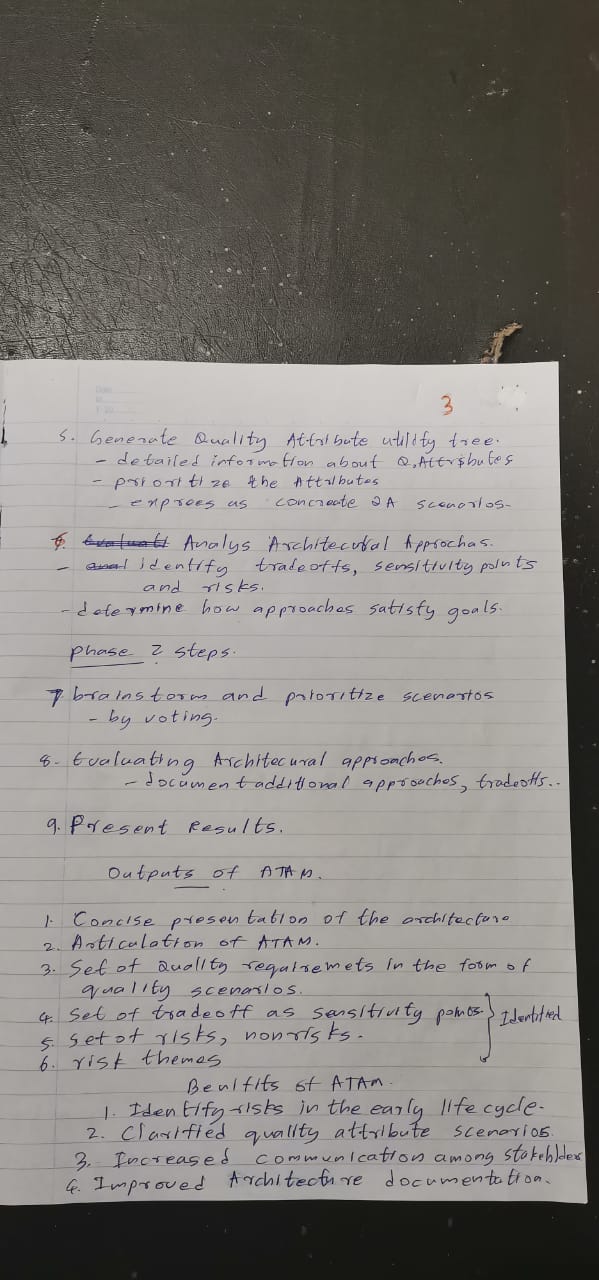 3
5. Generate Quality Attribute utility tree.
- detailed information about Q.Attributes
- prioritize the Attributes
- exprees as concreate QA scenarios-
6. Evaluati Analys Architecutal Approchas.
- anal identify tradeoffs, sensitivity points
and risks.
- determine how approaches satisfy goals.
phase 2 steps.
7 brainstorm and prioritize scenarios
- by voting.
8. Evaluating Architecural approaches.
- document additional approaches, tradeoffs..
9. Present Results.
Outputs of ATAM.
1. Concise presentation of the architecture
2. Articulation of ATAM.
3. Set of Quality requiremets in the form of
quality scenarios.
4. Set of tradeoff as sensitivity points } Identified
5. Set of risks, nonrisks.
6. risk themes
Benifits of ATAM.
1. Identify risks in the early life cycle.
2. Clarified quality attribute scenarios.
3. Increased communication among stakehlder
4. Improved Architecture documentation.